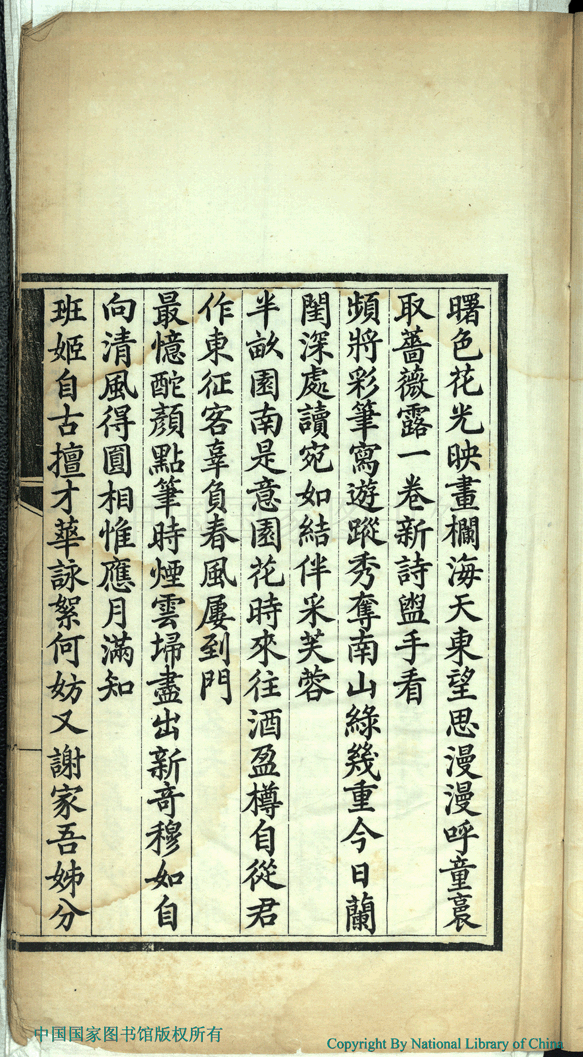 曙色花光映畫欄海天東望思漫漫呼童裛
取薔薇露一卷新詩盥手看
頻將彩筆寫遊蹤秀奪南山綠幾重今日蘭
閨深處讀宛如結伴采芙蓉
半畝園南是意園花時來往酒盈樽自從君
作東征客辜負春風屢到門
最憶酡顏點筆時煙雲埽盡出新奇穆如自
向清風得圓相惟應月滿知
班姬自古擅才華詠絮何妨又謝家吾姊分
中国国家图书馆版权所有
Copyright By National Library of China